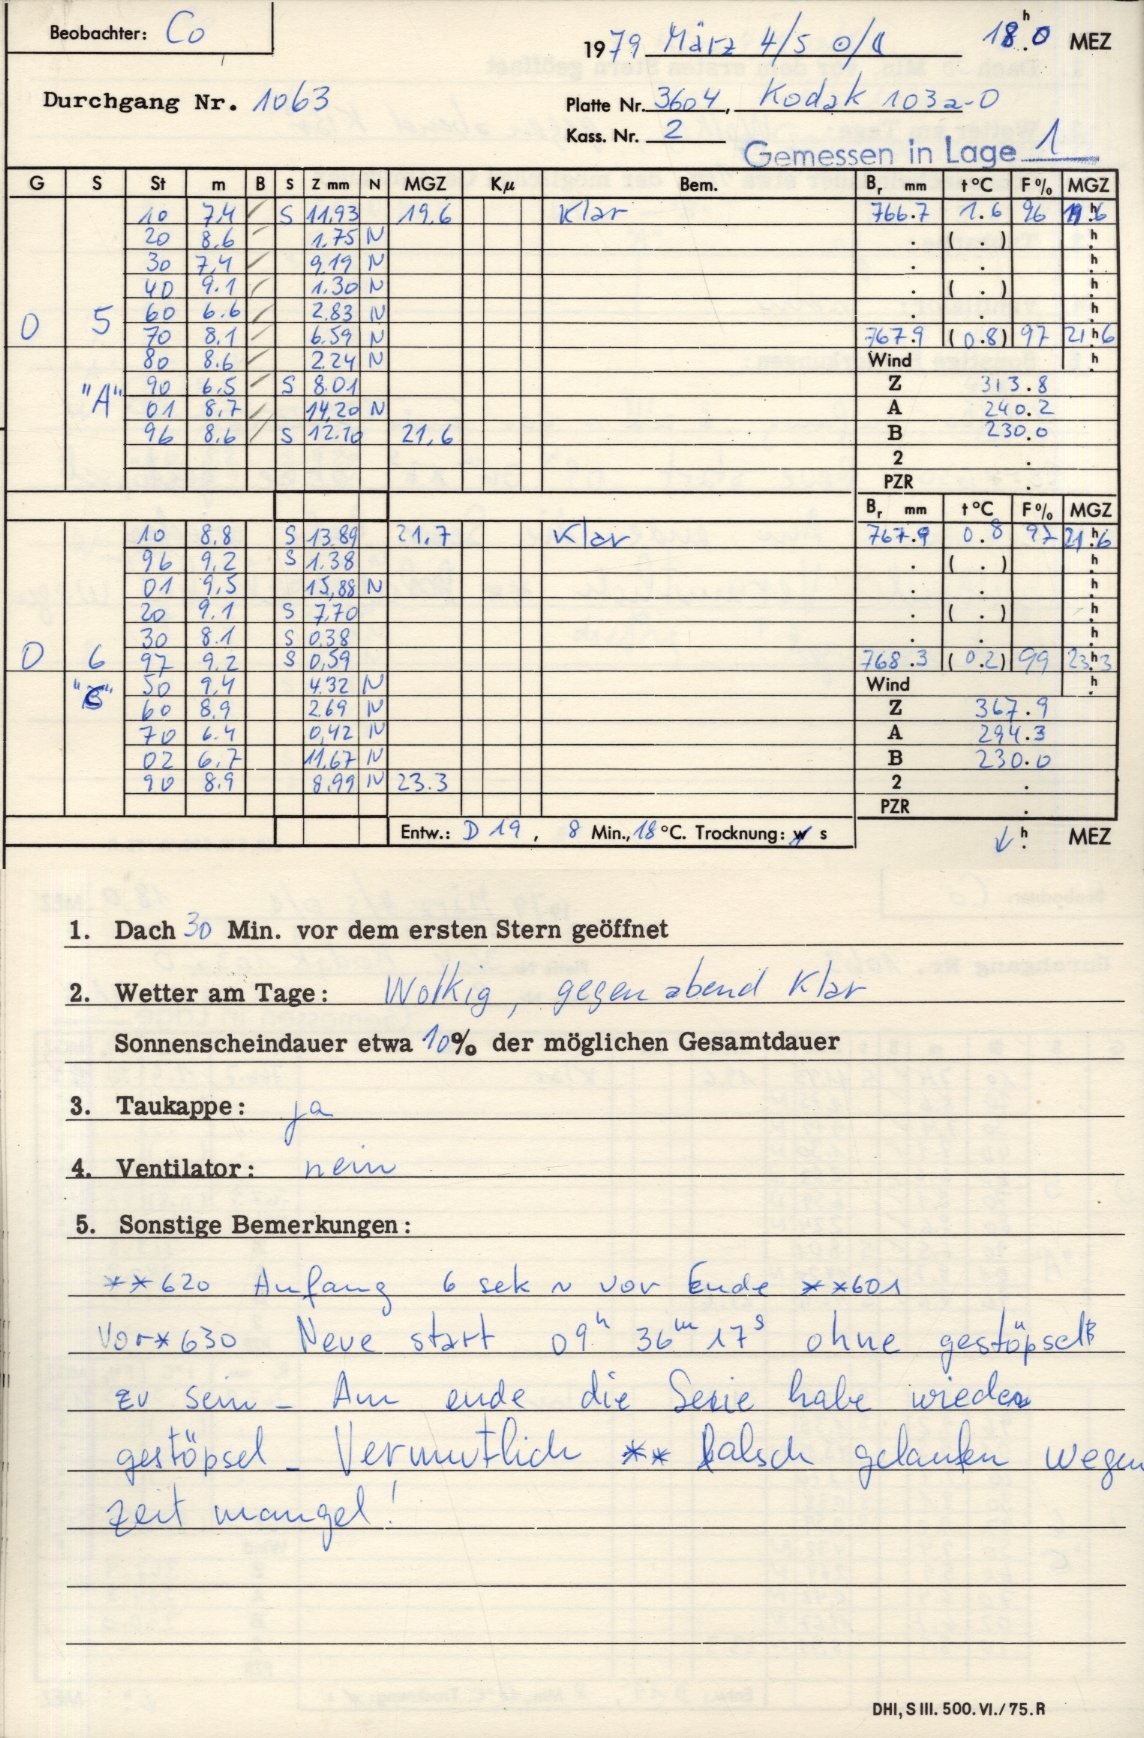 Beobachter: Co
1979 März 4/5 ⊙/☾ 18h.0 MEZ
Durchgang Nr. 1063
Platte Nr. 3604, Kodak 103a-O
Kass. Nr. 2
Gemessen in Lage 1
G S St m B S Z mm N MGZ Kμ Bem. Br mm t°C F% MGZ
10 7.4 / S 11,93 19.6 Klar 766.7 1.6 96 19h.6
20 8.6 / 1.75 N . ( . ) h.
30 7,4 / 9,19 N . . h.
40 9.1 / 1.30 N . ( . ) h.
60 6.6 / 2.83 N . . h.
0 5 70 8.1 / 6.59 N 767.9 (0.8) 97 21h.6
80 8.6 / 2.24 N Wind h.
"A" 90 6.5 / S 8.01 Z 313.8
01 8,7 / 14,20 N A 240.2
96 8.6 / S 12.10 21,6 B 230.0
2 .
PZR .
Br mm t°C F% MGZ
10 8.8 S 13,89 21.7 Klar 767.9 0.8 97 21h.6
96 9,2 S 1.38 . ( . ) h.
01 9,5 15,88 N . . h.
20 9.1 S 7,70 . ( . ) h.
30 8.1 S 0.38 . . h.
0 6 97 9.2 S 0,59 768.3 (0.2) 99 23h.3
50 9,4 4.32 N Wind h.
60 8,9 2.69 N Z 367.9
70 6.4 0,42 N A 294.3
02 6,7 11,67 N B 230.0
90 8.9 8,99 N 23.3 2 .
PZR .
Entw.: D 19, 8 Min., 18 °C. Trocknung: w s h. MEZ
1. Dach 30 Min. vor dem ersten Stern geöffnet
2. Wetter am Tage: Wolkig, gegen abend Klar
Sonnenscheindauer etwa 10% der möglichen Gesamtdauer
3. Taukappe: ja
4. Ventilator: nein
5. Sonstige Bemerkungen:
**620 Anfang 6 sek ~ vor Ende **601
Vor*630 Neue start 09h 36m 17s ohne gestöpselt
zu sein _ Am ende die Serie habe wieder
gestöpsel _ Vermutlich ** falsch gelaufen wegen
zeit mangel!
DHI, S III. 500. VI./75. R